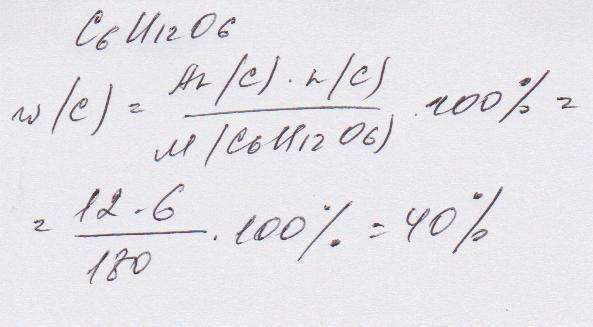 C6H12O6
w(C) = Ar(C) · n(C) / M(C6H12O6) · 100% =
= 12 · 6 / 180 · 100% = 40%